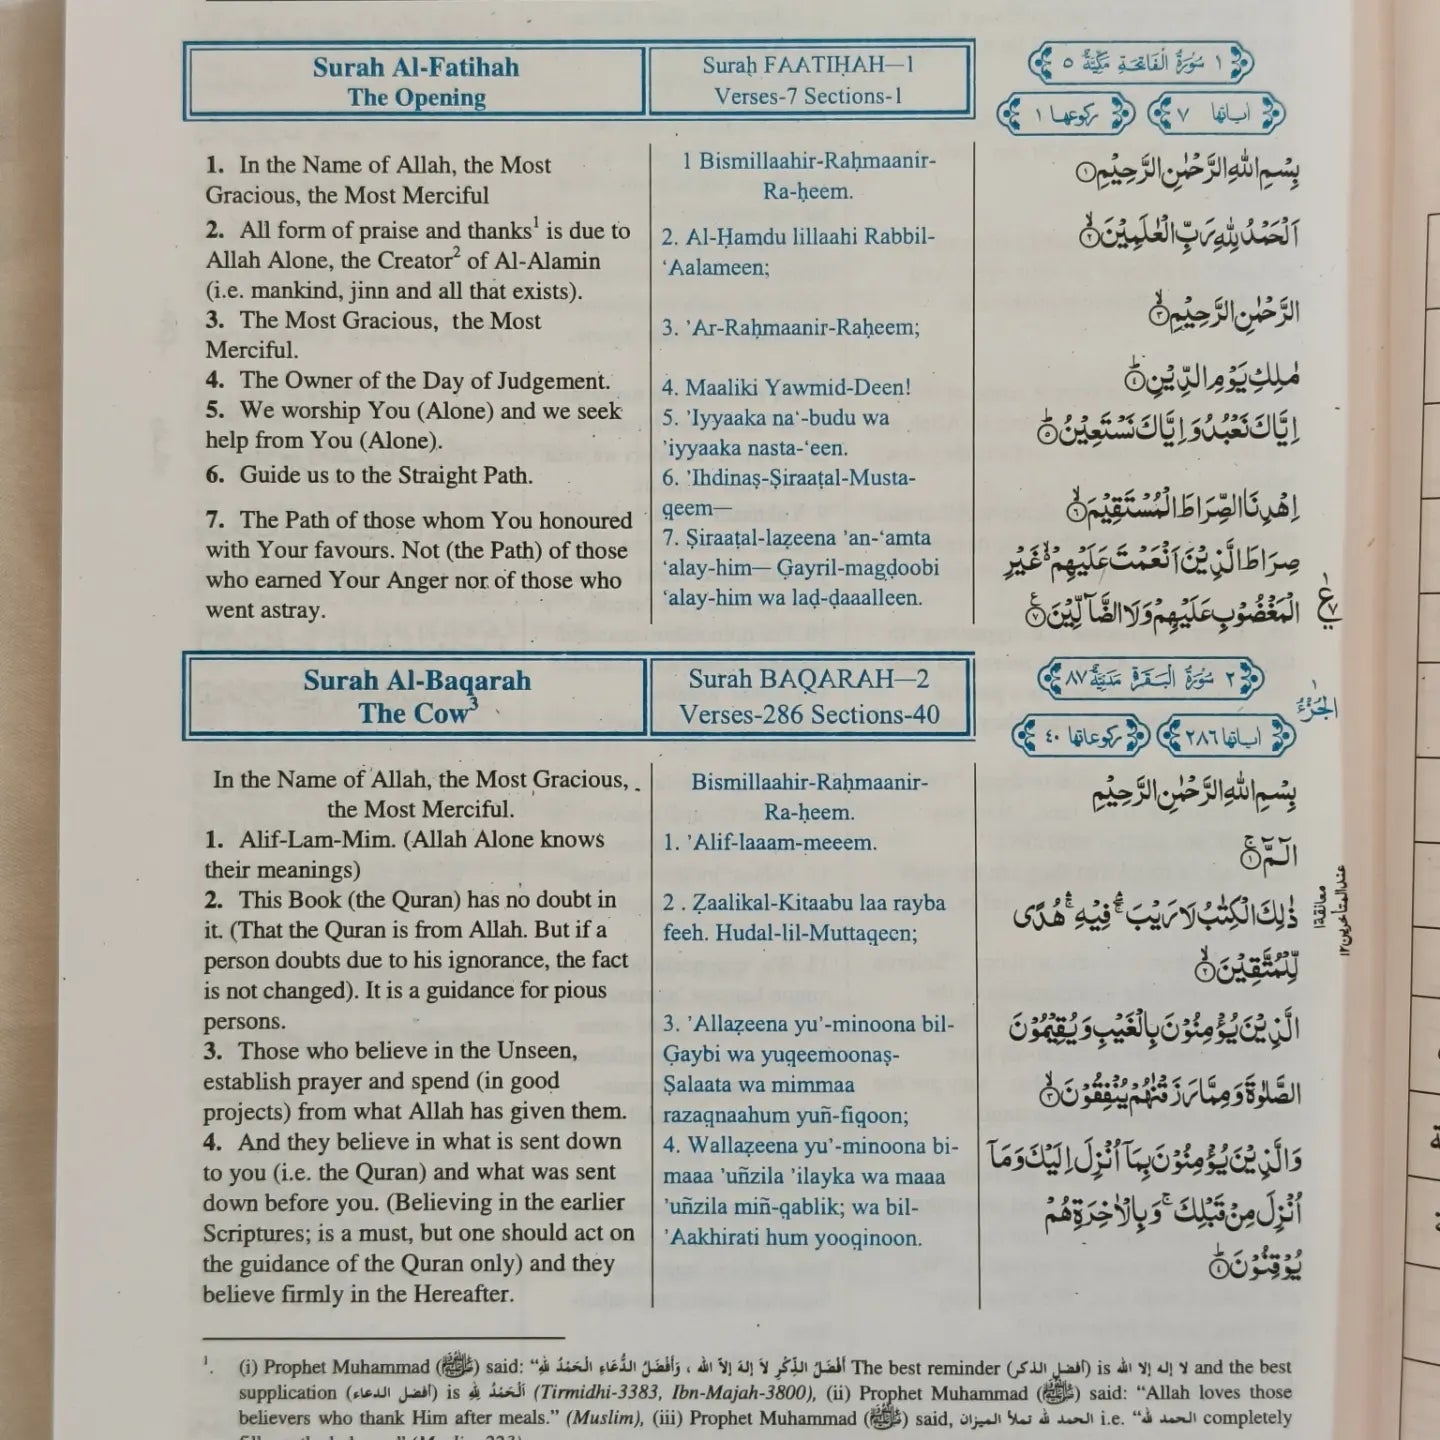 Surah Al-Fatihah
The Opening
Surah FAATIḤAH—1
Verses-7 Sections-1
١ سُوْرَةُ الْفَاتِحَةِ مَكِّيَّةٌ ٥
اٰيَاتُهَا ٧
رُكُوْعُهَا ١
1. In the Name of Allah, the Most
Gracious, the Most Merciful
2. All form of praise and thanks¹ is due to
Allah Alone, the Creator² of Al-Alamin
(i.e. mankind, jinn and all that exists).
3. The Most Gracious, the Most
Merciful.
4. The Owner of the Day of Judgement.
5. We worship You (Alone) and we seek
help from You (Alone).
6. Guide us to the Straight Path.
7. The Path of those whom You honoured
with Your favours. Not (the Path) of those
who earned Your Anger nor of those who
went astray.
1 Bismillaahir-Raḥmaanir-
Ra-ḥeem.
2. Al-Ḥamdu lillaahi Rabbil-
‘Aalameen;
3. ’Ar-Raḥmaanir-Raḥeem;
4. Maaliki Yawmid-Deen!
5. ’Iyyaaka na‘-budu wa
’iyyaaka nasta-‘een.
6. ’Ihdinaṣ-Ṣiraaṭal-Musta-
qeem—
7. Ṣiraaṭal-laẓeena ’an-‘amta
‘alay-him— Ġayril-magḍoobi
‘alay-him wa laḍ-ḍaaalleen.
بِسْمِ اللّٰهِ الرَّحْمٰنِ الرَّحِيْمِ ۝١
اَلْحَمْدُ لِلّٰهِ رَبِّ الْعٰلَمِيْنَ ۙ۝٢
الرَّحْمٰنِ الرَّحِيْمِ ۙ۝٣
مٰلِكِ يَوْمِ الدِّيْنِ ؕ۝٤
اِيَّاكَ نَعْبُدُ وَاِيَّاكَ نَسْتَعِيْنُ ؕ۝٥
اِهْدِنَا الصِّرَاطَ الْمُسْتَقِيْمَ ۙ۝٦
صِرَاطَ الَّذِيْنَ اَنْعَمْتَ عَلَيْهِمْ ۙ۬ غَيْرِ
الْمَغْضُوْبِ عَلَيْهِمْ وَلَا الضَّآلِّيْنَ ۝٧
١
ع
٧
Surah Al-Baqarah
The Cow³
Surah BAQARAH—2
Verses-286 Sections-40
٢ سُوْرَةُ الْبَقَرَةِ مَدَنِيَّةٌ ٨٧
اٰيَاتُهَا ٢٨٦
رُكُوْعَاتُهَا ٤٠
الجُزْءُ ١
In the Name of Allah, the Most Gracious,
the Most Merciful.
1. Alif-Lam-Mim. (Allah Alone knows
their meanings)
2. This Book (the Quran) has no doubt in
it. (That the Quran is from Allah. But if a
person doubts due to his ignorance, the fact
is not changed). It is a guidance for pious
persons.
3. Those who believe in the Unseen,
establish prayer and spend (in good
projects) from what Allah has given them.
4. And they believe in what is sent down
to you (i.e. the Quran) and what was sent
down before you. (Believing in the earlier
Scriptures; is a must, but one should act on
the guidance of the Quran only) and they
believe firmly in the Hereafter.
Bismillaahir-Raḥmaanir-
Ra-ḥeem.
1. ’Alif-laaam-meeem.
2 . Ẓaalikal-Kitaabu laa rayba
feeh. Hudal-lil-Muttaqeen;
3. ’Allaẓeena yu’-minoona bil-
Ġaybi wa yuqeemoonaṣ-
Ṣalaata wa mimmaa
razaqnaahum yuñ-fiqoon;
4. Wallaẓeena yu’-minoona bi-
maaa ’uñzila ’ilayka wa maaa
’uñzila miñ-qablik; wa bil-
’Aakhirati hum yooqinoon.
بِسْمِ اللّٰهِ الرَّحْمٰنِ الرَّحِيْمِ
الٓمّٓ ۚ۝١
ذٰلِكَ الْكِتٰبُ لَا رَيْبَ ۛۚ فِيْهِ ۛۚ هُدًى
لِّلْمُتَّقِيْنَ ۙ۝٢
الَّذِيْنَ يُؤْمِنُوْنَ بِالْغَيْبِ وَيُقِيْمُوْنَ
الصَّلٰوةَ وَمِمَّا رَزَقْنٰهُمْ يُنْفِقُوْنَ ۙ۝٣
وَالَّذِيْنَ يُؤْمِنُوْنَ بِمَآ اُنْزِلَ اِلَيْكَ وَمَآ
اُنْزِلَ مِنْ قَبْلِكَ ۚ وَبِالْاٰخِرَةِ هُمْ
يُوْقِنُوْنَ ؕ۝٤
معانقة١
عند المتاخرين١٢
1. (i) Prophet Muhammad (ﷺ) said: “أَفْضَلُ الذِّكْرِ لاَ إِلهَ إِلاَّ الله ، وَأَفْضَلُ الدُّعَاءِ الْحَمْدُ لله The best reminder (أفضل الذكر) is لا إله إلا الله and the best
supplication (أفضل الدعاء) is اَلْحَمْدُ لِلّٰهِ (Tirmidhi-3383, Ibn-Majah-3800), (ii) Prophet Muhammad (ﷺ) said: “Allah loves those
believers who thank Him after meals.” (Muslim), (iii) Prophet Muhammad (ﷺ) said, الحمد لله تملأ الميزان i.e. “الحمد لله” completely